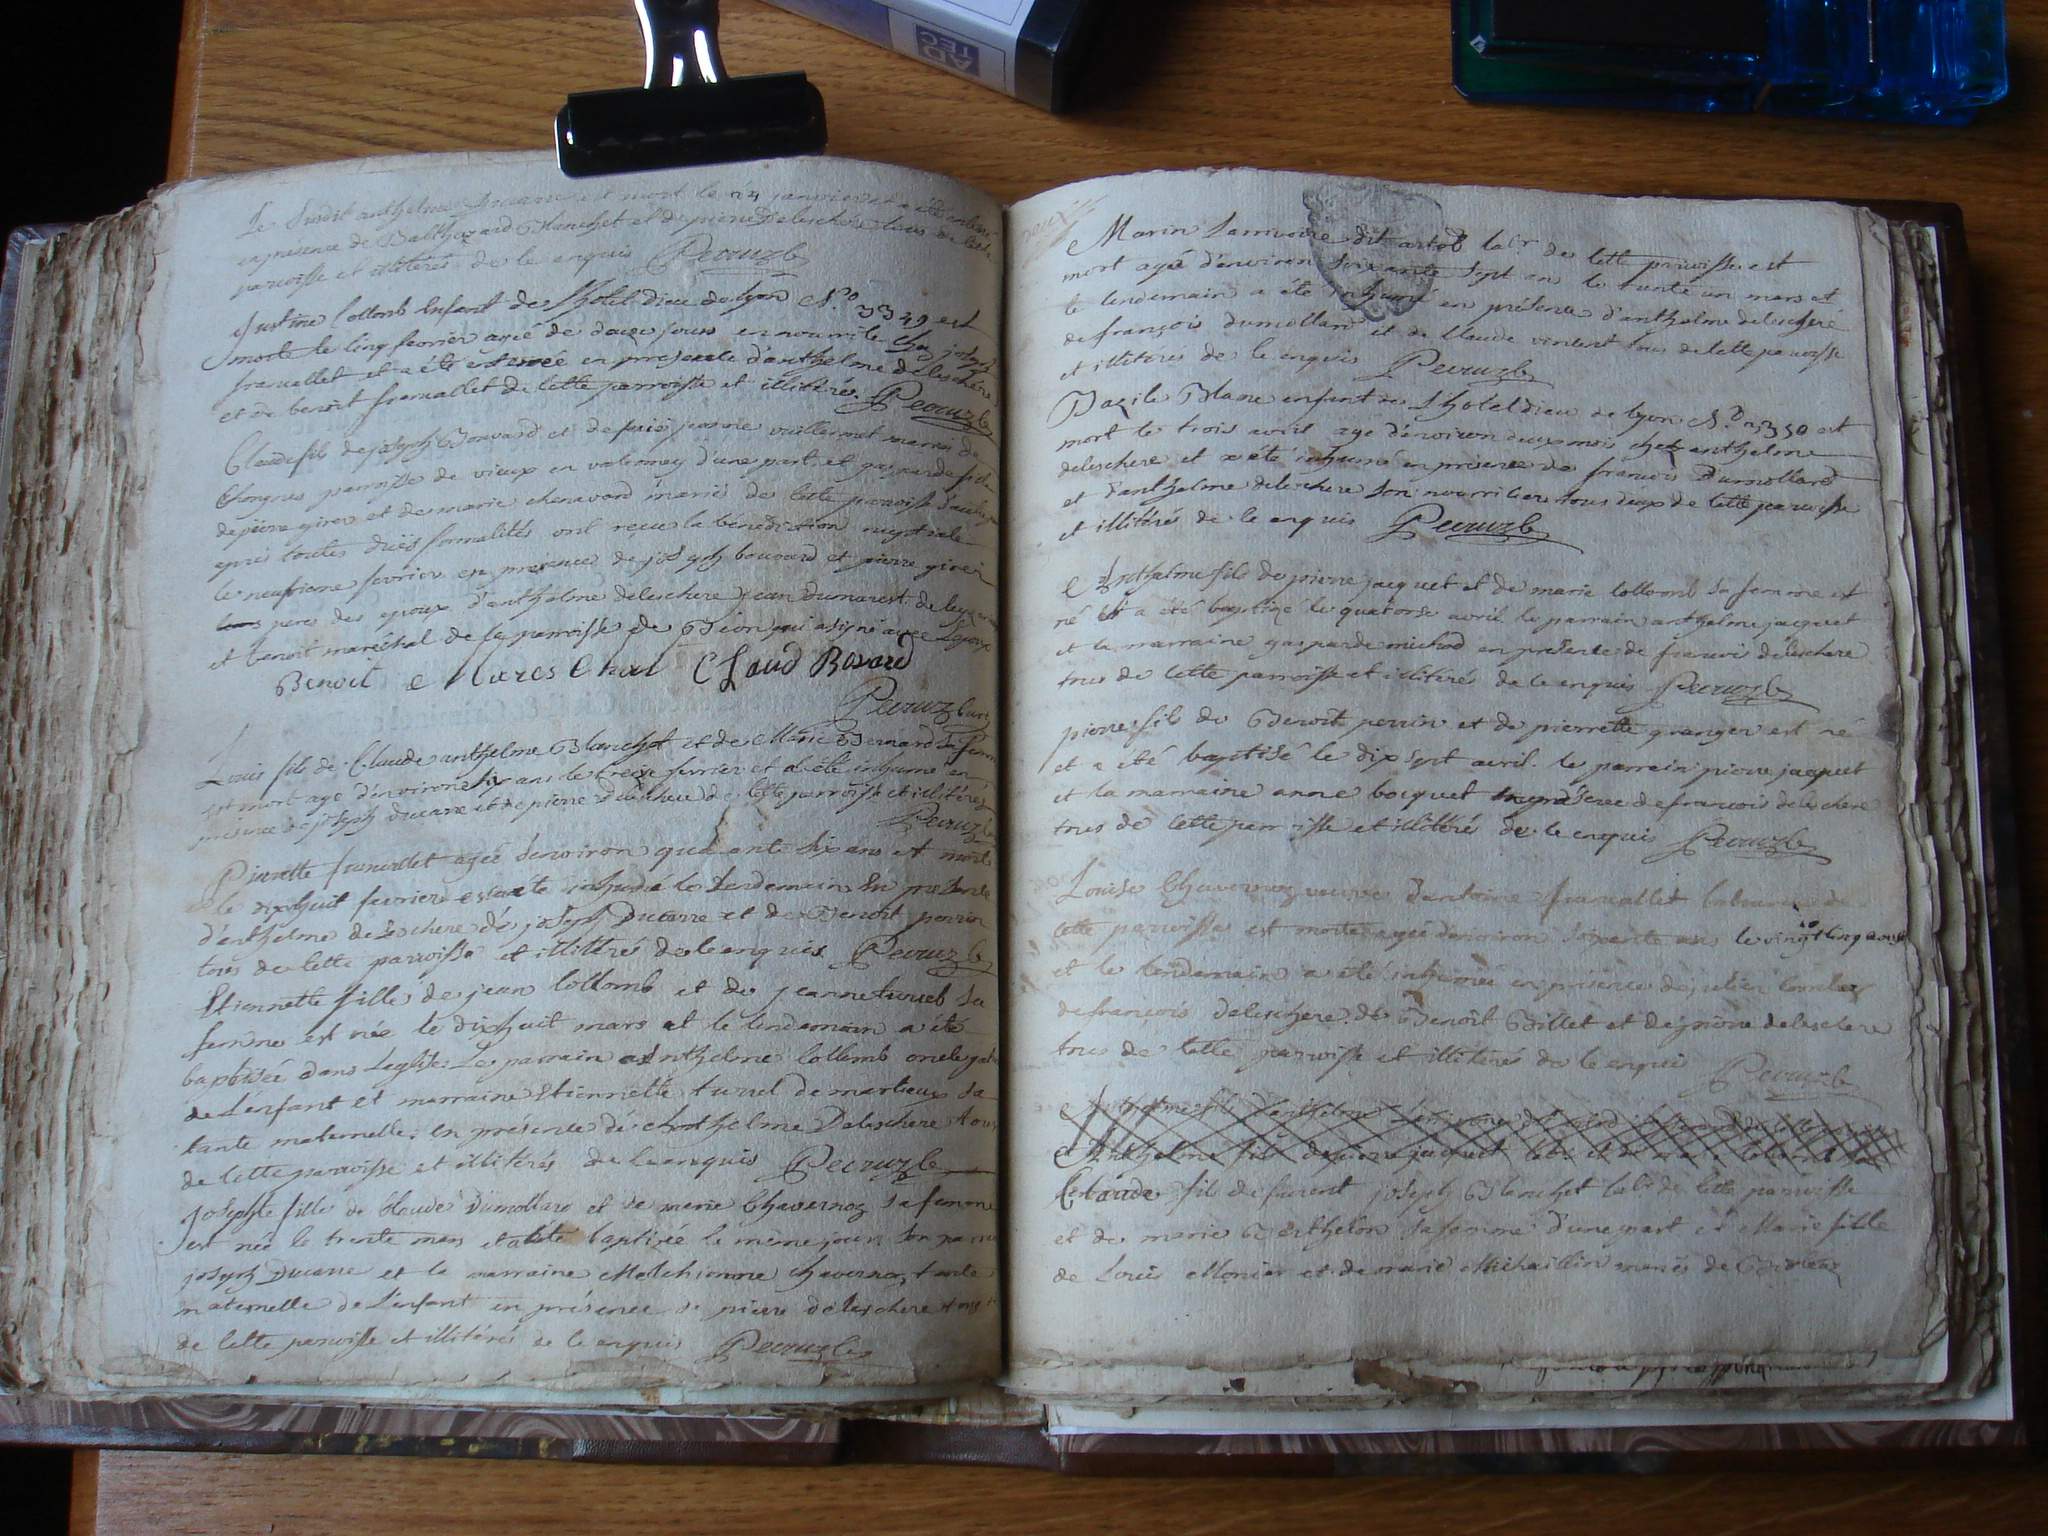 AD
TEC
Le susdit anthelme Ducarre est mort le 24 janvier et a été enterré
en présence de Balthazard Blanchet et de pierre Deleschere tous de cette
parroisse et illitérés de ce enquis Peeruz c
Justine Collomb Enfant de l'hotel dieu de lyon N.º 3349 est
morte le cinq fevrier agée de douze jours en nourrite chez joseph
francallet et a été enterrée en presence d'anthelme deleschere
et de benoit francallet de cette parroisse et illitérés. Peeruz c
Claude fils de joseph Bouvard et de marie vuillermet mariés de
Chongnes parroisse de vieux en valromey d'une part et gasparde fille
de pierre girer et de marie chenavard mariés de cette parroisse d'autre
après toutes dues formalités ont reçu la bénédiction nuptiale
le neufvieme fevrier en présence de joseph bouvard et pierre girer
peres des epoux d'anthelme deleschere jean dumarest de
et benoit maréchal de la parroisse de Béon qui a signé avec l'époux
Benoit Mareschal Claud Bovard
Peeruz curé
Louis fils de Claude anthelme Blanchet et de Marie Bernard sa femme
est mort agé d'environ six ans le treize fevrier et a été inhumé en
présence de joseph ducarre et de pierre deleschere de cette parroisse et illitérés
Peeruz c
Pierrette francallet agée d'environ quarante six ans est morte
le dixhuit fevrier et a été inhumée le lendemain En présence
d'anthelme deleschere de joseph Ducarre et de Benoit perrin
tous de cette parroisse et illitérés de ce enquis Peeruz c
Etiennette fille de jean Collomb et de jeanne turrel sa
femme est née le dixhuit mars et le lendemain a été
baptisée dans l'eglise. Le parrain Anthelme Collomb oncle
de l'enfant et marraine Etiennette turrel de martieux sa
tante maternelle. en présence de Anthelme Deleschere tous
de cette parroisse et illitérés de ce enquis Peeruz c
Josephte fille de Claude Dumollard et de marie Chavernoz sa femme
est née le trente mars et a été baptisée le même jour son parrain
joseph Ducarre et la marraine Melchionne chavernoz tante
maternelle de l'enfant en présence de pierre deleschere tous
de cette parroisse et illitérés de ce enquis Peeruz c
Marin Larrivoire dit artod lab.r de cette parroisse est
mort agé d'environ soixante sept ans le trente un mars et
le lendemain a été inhumé en présence d'anthelme deleschere
de françois dumollard et de Claude vincent tous de cette parroisse
et illitérés de ce enquis Peeruz c
Bazile Blanc enfant de l'hotel dieu de lyon N.º est
mort le trois avril agé d'environ deux mois chez anthelme
deleschere et a été inhumé en présence de francois Dumollard
et d'anthelme deleschere son nourricier tous deux de cette parroisse
et illitérés de ce enquis Peeruz c
Anthelme fils de pierre jacquet et de marie Collomb sa femme est
né et a été baptizé le quatorze avril le parrain anthelme jacquet
et la marraine gasparde michod en présence de francois deleschere
tous de cette parroisse et illitérés de ce enquis Peeruz c
pierre fils de Benoit perrin et de pierrette granger est né
et a été baptisé le dix sept avril. le parrain pierre jacquet
et la marraine anne bocquet en présence de francois deleschere
tous de cette parroisse et illitérés de ce enquis Peeruz c
Louise Chavernoz veuve d'antoine francallet laboureur de
cette parroisse est morte agée d'environ soixante ans le vingt cinq aoust
et le lendemain a été inhumée en présence de julien
de françois deleschere. de Benoit Billet et de pierre deleschere
tous de cette parroisse et illitérés de ce enquis Peeruz c
Anthelme fils d'anthelme
Anthelme fils de pierre jacquet lab.r et de marie Collomb sa
Claude fils de furent joseph Blanchet lab.r de cette parroisse
et de marie Berthelon sa femme d'une part et Marie fille
de Louis Monier et de marie Michaillin mariés de